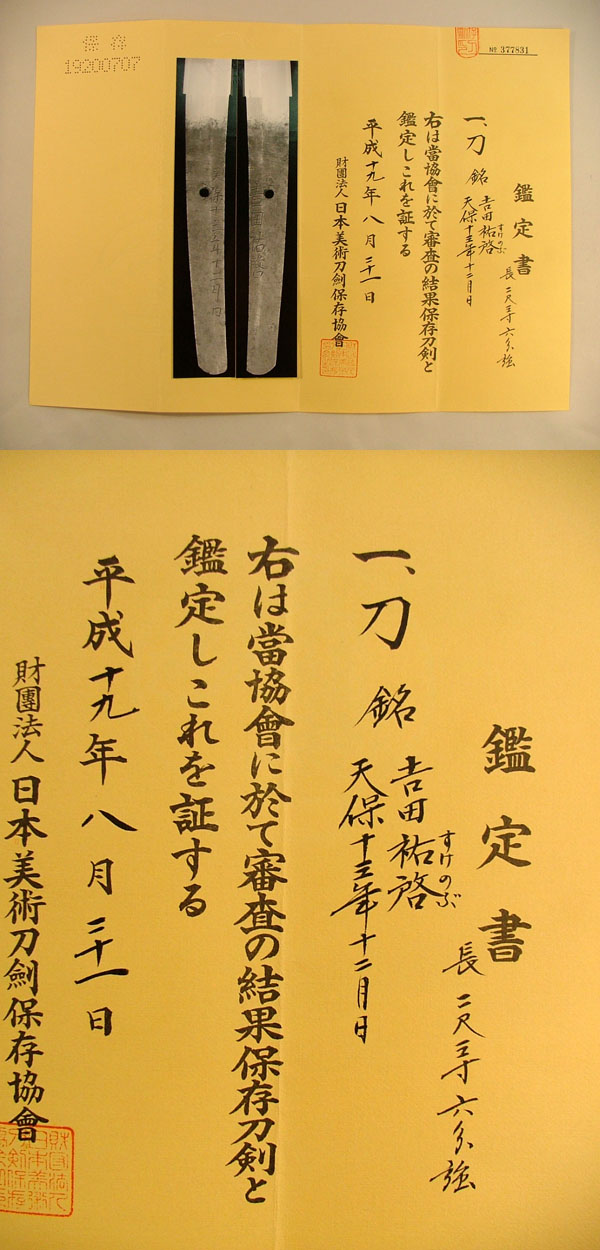 保存
19200707
№ 377831
鑑定書
一、刀 銘 吉田祐啓
すけのぶ
天保十三年十二月日
長 二尺三寸六分強
右は當協會に於て審査の結果保存刀剣と
鑑定しこれを証する
平成十九年八月三十一日
財團法人日本美術刀劍保存協會
鑑定書
長 二尺三寸六分強
一、刀 銘 吉田祐啓
すけのぶ
天保十三年十二月日
右は當協會に於て審査の結果保存刀剣と
鑑定しこれを証する
平成十九年八月三十一日
財團法人日本美術刀劍保存協會